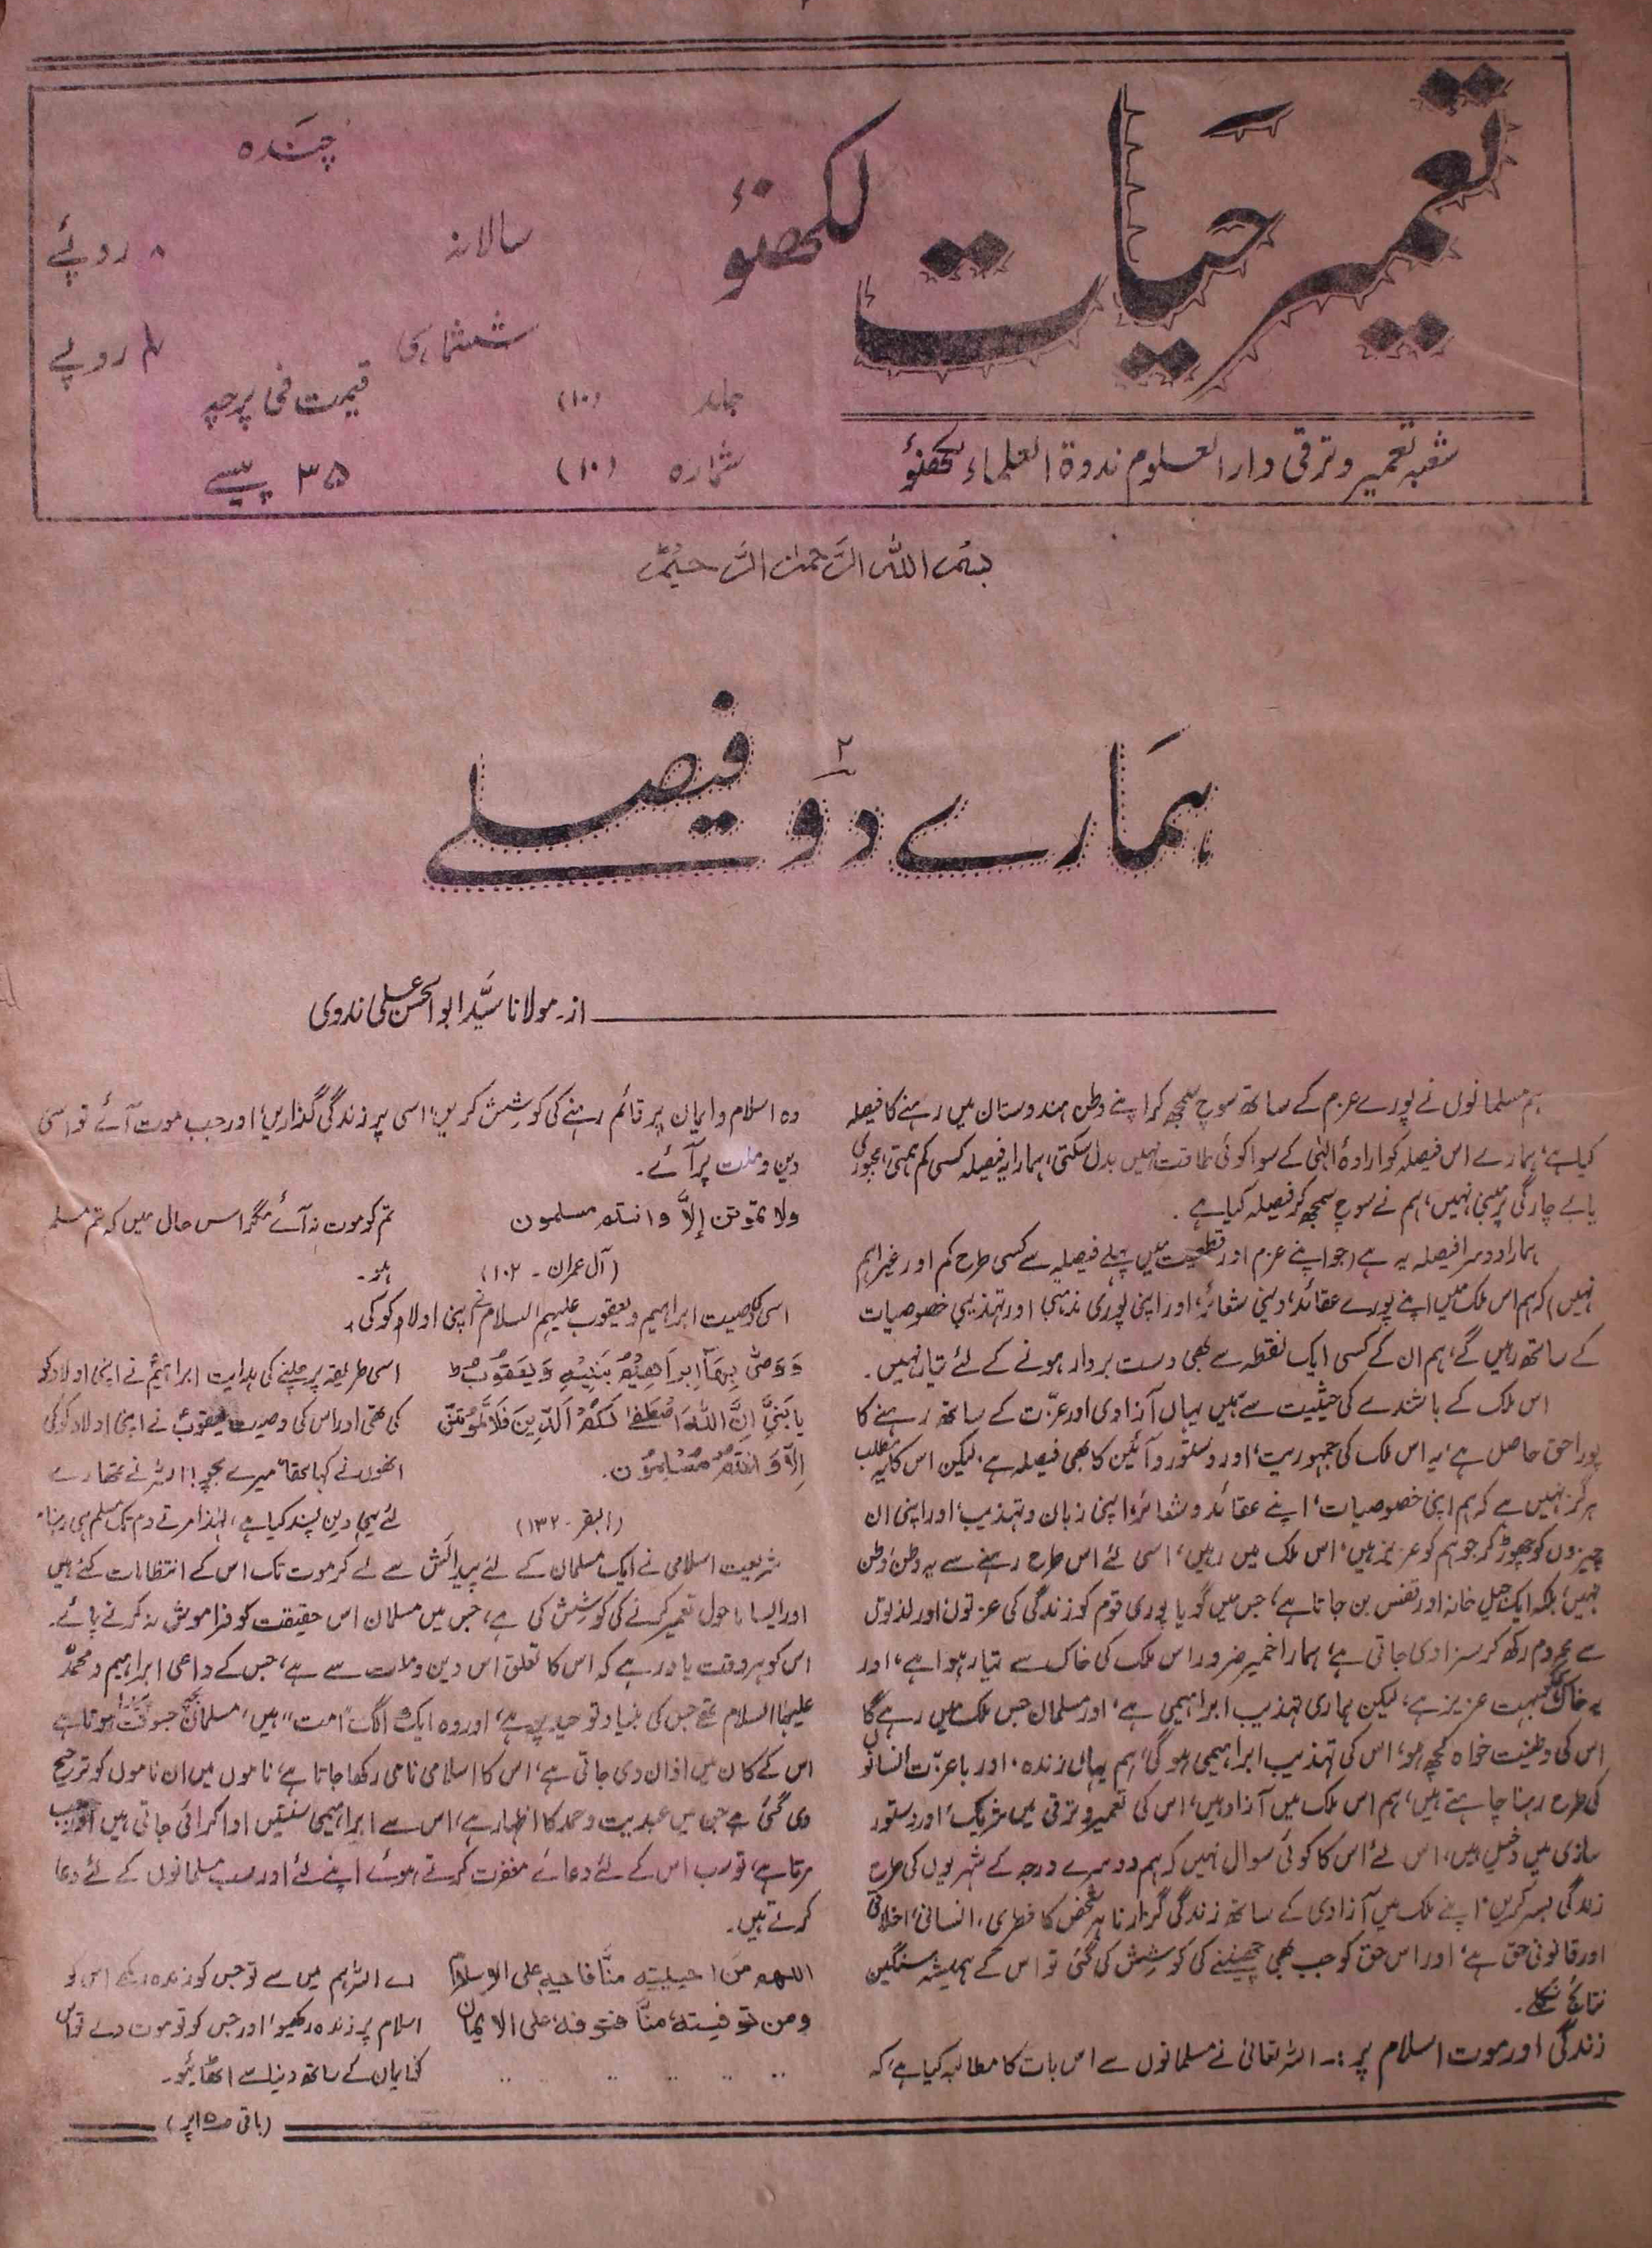 تعمیر حیات لکھنؤ
شعبہ تعمیر و ترقی دار العلوم ندوۃ العلماء لکھنؤ
چندہ
سالانہ ۸ روپئے
ششماہی ۴ روپے
جلد (۱۰) قیمت فی پرچہ
شمارہ (۱۰) ۳۵ پیسے
بسم اللہ الرحمن الرحیم
ہمارے دو ۲ فیصلے
از۔ مولانا سید ابو الحسن علی ندوی
ہم مسلمانوں نے پورے عزم کے ساتھ سوچ سمجھ کر اپنے وطن ہندوستان میں رہنے کا فیصلہ
کیا ہے، ہمارے اس فیصلہ کو ارادۂ الٰہی کے سوا کوئی طاقت نہیں بدل سکتی، ہمارا یہ فیصلہ کسی کم ہمتی، مجبوری
یا بے چارگی پر مبنی نہیں، ہم نے سوچ سمجھ کر فیصلہ کیا ہے۔
ہمارا دوسرا فیصلہ یہ ہے (جو اپنے عزم اور قطعیت میں پہلے فیصلہ سے کسی طرح کم اور غیر اہم
نہیں) کہ ہم اس ملک میں اپنے پورے عقائد، دینی شعائر، اور اپنی پوری مذہبی اور تہذیبی خصوصیات
کے ساتھ رہیں گے، ہم ان کے کسی ایک نقطہ سے بھی دست بردار ہونے کے لئے تیار نہیں۔
اس ملک کے باشندے کی حیثیت سے ہمیں یہاں آزادی اور عزّت کے ساتھ رہنے کا
پورا حق حاصل ہے، یہ اس ملک کی جمہوریت، اور دستور و آئین کا بھی فیصلہ ہے، لیکن اس کا یہ مطلب
ہرگز نہیں ہے کہ ہم اپنی خصوصیات، اپنے عقائد و شعائر، اپنی زبان و تہذیب، اور اپنی ان
چیزوں کو چھوڑ کر جو ہم کو عزیز ہیں، اس ملک میں رہیں، اسی لئے اس طرح رہنے سے یہ وطن، وطن
نہیں، بلکہ ایک جیل خانہ اور قفس بن جاتا ہے، جس میں گویا پوری قوم کو زندگی کی عزتوں اور لذتوں
سے محروم رکھ کر سزا دی جاتی ہے، ہمارا خمیر ضرور اس ملک کی خاک سے تیار ہوا ہے، اور
یہ خاک ہمکو بہت عزیز ہے، لیکن ہماری تہذیب ابراہیمی ہے، اور مسلمان جس ملک میں رہے گا
اس کی وطنیت خواہ کچھ ہو، اس کی تہذیب ابراہیمی ہو گی، ہم یہاں زندہ، اور باعزّت انسانوں
کی طرح رہنا چاہتے ہیں، ہم اس ملک میں آزاد ہیں، اس کی تعمیر و ترقی میں شریک، اور دستور
سازی میں دخیل ہیں، اس لئے اس کا کوئی سوال نہیں کہ ہم دوسرے درجہ کے شہریوں کی طرح
زندگی بسر کریں، اپنے ملک میں آزادی کے ساتھ زندگی گزارنا ہر شخص کا فطری، انسانی، اخلاقی
اور قانونی حق ہے، اور اس حق کو جب بھی چھیننے کی کوشش کی گئی تو اس کے ہمیشہ سنگین
نتائج نکلے۔
زندگی اور موت اسلام پر :۔ اللہ تعالیٰ نے مسلمانوں سے اس بات کا مطالبہ کیا ہے، کہ
وہ اسلام و ایمان پر قائم رہنے کی کوشش کریں، اسی پر زندگی گذاریں، اور جب موت آئے تو اسی
دین و ملت پر آئے۔
ولا تموتن إلاَّ وانتم مسلمون
(آل عمران۔ ۱۰۲)
تم کو موت نہ آئے مگر اس حال میں کہ تم مسلم
ہو۔
اسی کی وصیت ابراہیم و یعقوب علیہم السلام نے اپنی اولاد کو کی،
وَوَصّٰى بِهَآ اِبراهيمُ بَنِيْهِ وَيَعقوبُ ط
يٰبَنِيَّ اِنَّ اللّٰهَ اصْطَفٰى لَكُمُ الدِّينَ فَلاَ تَمُوْتُنَّ
اِلاَّ وَاَنْتُمْ مُسْلِمُوْن۔
(البقر۔ ۱۳۲)
اسی طریقہ پر چلنے کی ہدایت ابراہیمؑ نے اپنی اولاد کو
کی تھی اور اس کی وصیت یعقوبؑ نے اپنی اولاد کو کی
انھوں نے کہا تھا ”میرے بچو! اللہ نے تمھارے
لئے یہی دین پسند کیا ہے، لہٰذا مرتے دم تک مسلم ہی رہنا“
شریعت اسلامی نے ایک مسلمان کے لئے پیدائش سے لے کر موت تک اس کے انتظامات کئے ہیں
اور ایسا ماحول تعمیر کرنے کی کوشش کی ہے، جس میں مسلمان اس حقیقت کو فراموش نہ کرنے پائے۔
اس کو ہر وقت یاد رہے کہ اس کا تعلق اس دین و ملت سے ہے، جس کے داعی ابراہیم و محمدؐ
علیہما السلام تھے جس کی بنیاد توحید پر ہے، اور وہ ایک الگ ”امت“ ہیں، مسلمان بچہ جسوقت پیدا ہوتا ہے
اس کے کان میں اذان دی جاتی ہے، اس کا اسلامی نام رکھا جاتا ہے، ناموں میں ان ناموں کو ترجیح
دی گئی ہے جن میں عبدیت و حمد کا اظہار ہے، اس سے ابراہیمی سنتیں ادا کرائی جاتی ہیں اور جب
مرتا ہے، تو سب اس کے لئے دعائے مغفرت کرتے ہوئے اپنے لئے اور سب مسلمانوں کے لئے دعا
کرتے ہیں۔
اللهم مَن احييته منّا فاحيه على الاسلام
ومن توفيته منّا فتوفه على الايمان
اے اللہ ہم میں سے تو جس کو زندہ رکھے اس کو
اسلام پر زندہ رکھیو، اور جس کو تو موت دے تو اس
کو ایمان کے ساتھ دنیا سے اٹھائیو۔
(باقی ص ۱۵ پر)